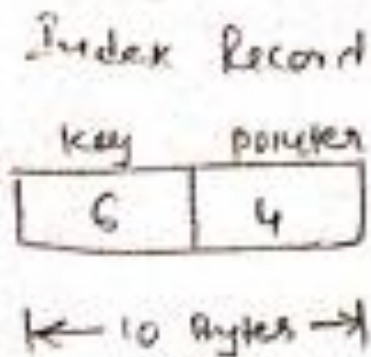 Index Record
key pointer
6 4
10 Bytes